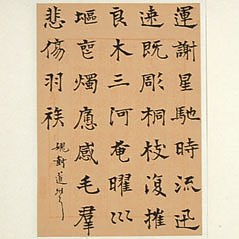 運謝星馳時流迅
速既彫桐枝復摧
良木三河奄曜巛
燭應感毛羣
悲傷羽族